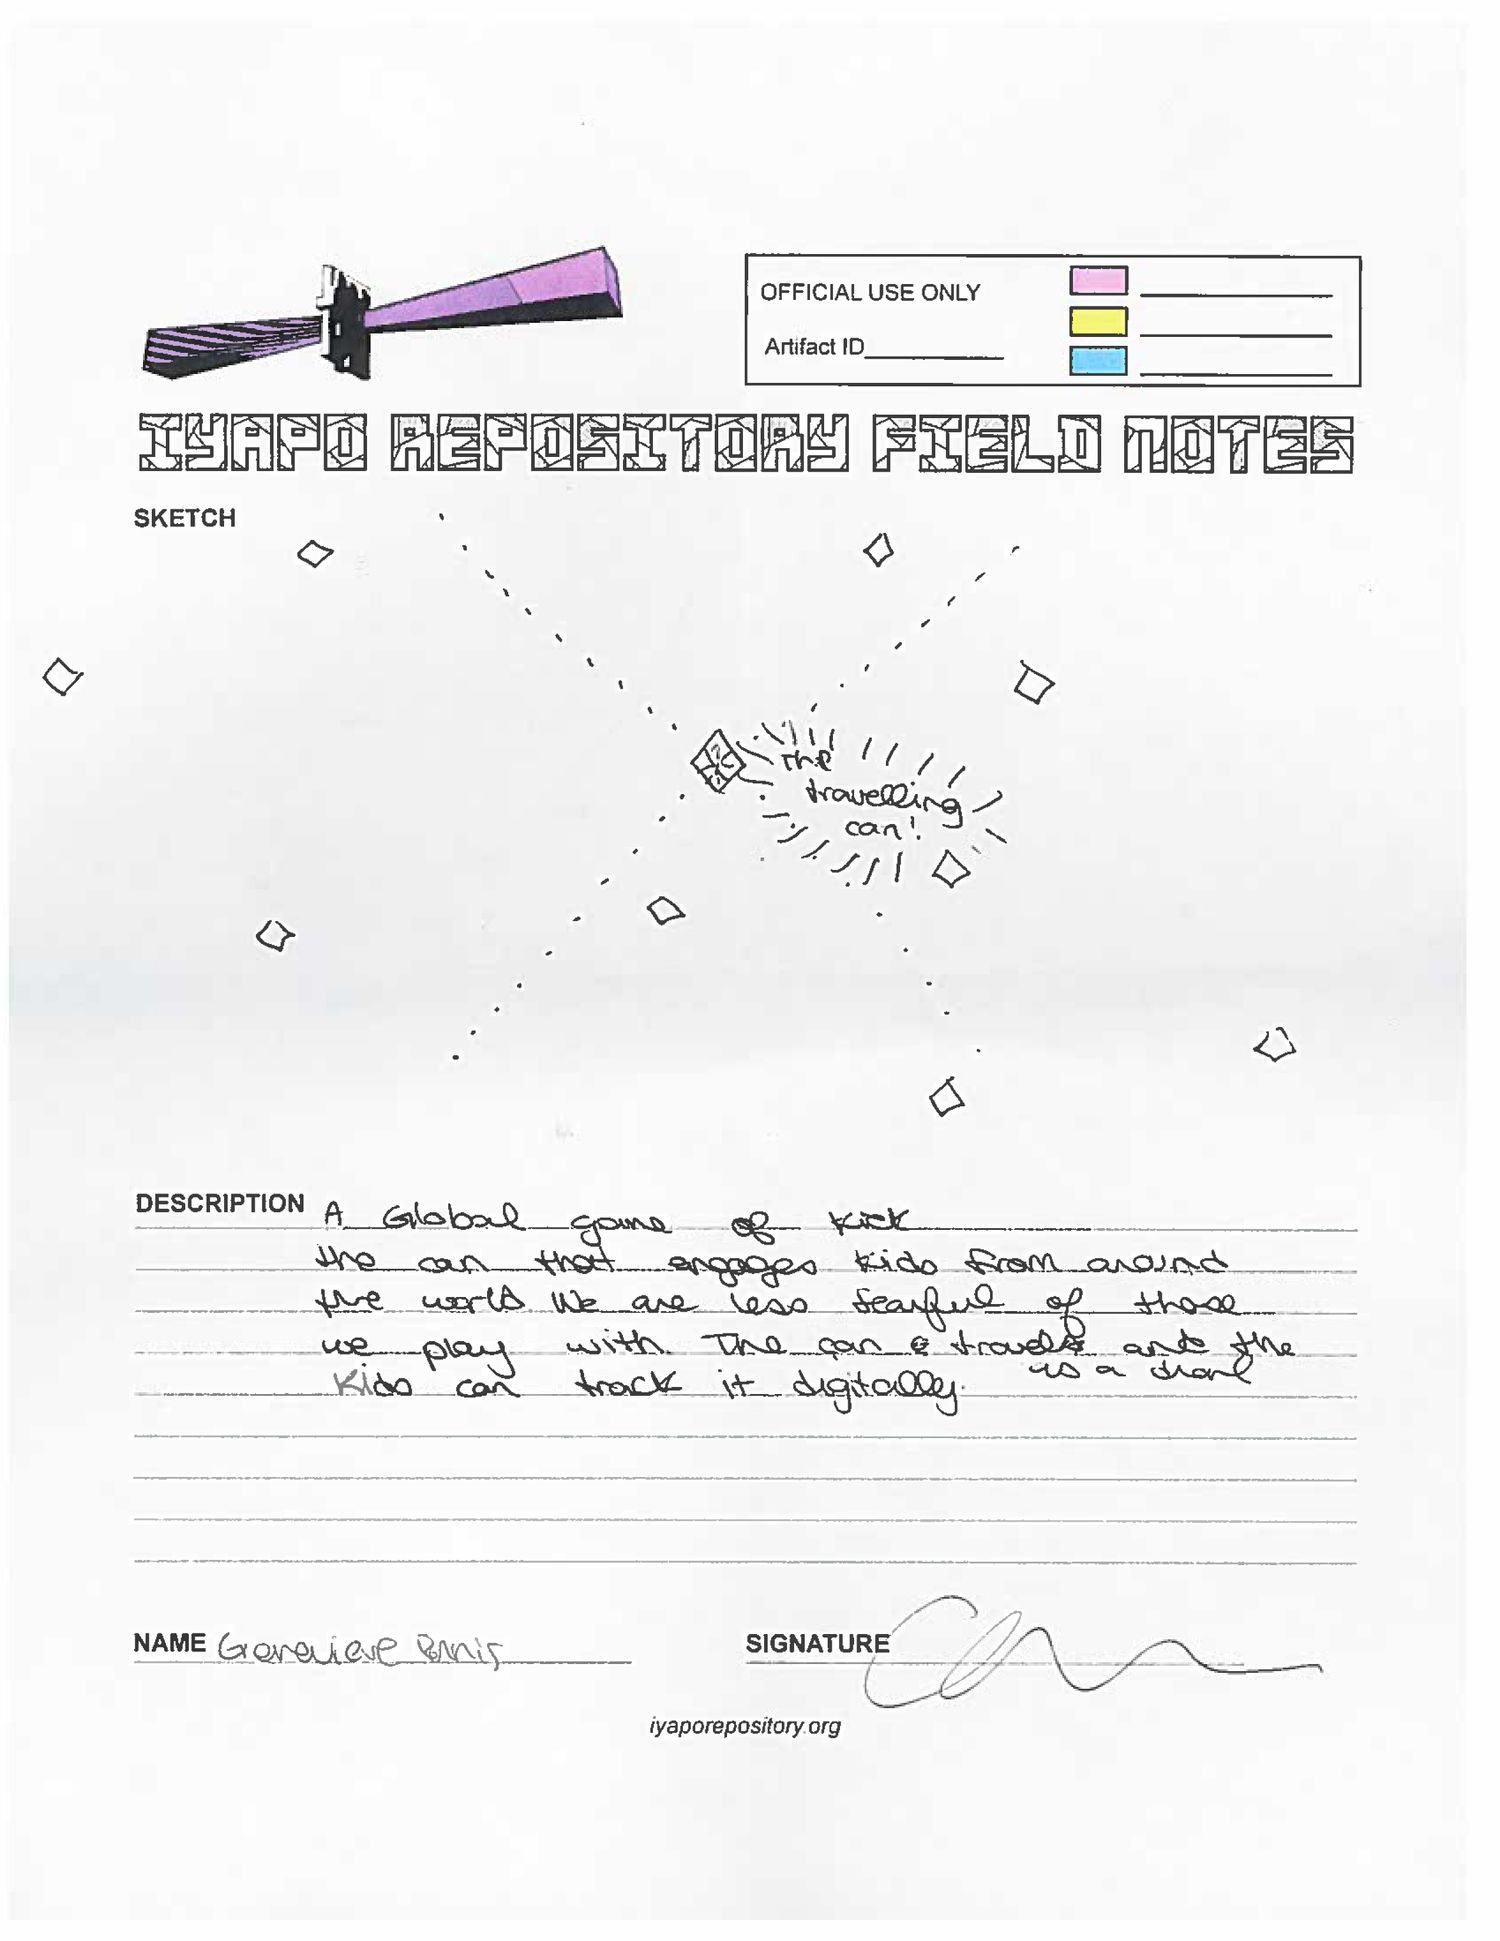 OFFICIAL USE ONLY
Artifact ID
IYAPO REPOSITORY FIELD NOTES
SKETCH
The
travelling
can!
DESCRIPTION A Global game of Kick
the can that engages kids from around
the world We are less fearful of those
we play with. The can travels and the
Kids can track it digitally. as a
NAME Genevieve
SIGNATURE
iyaporepository.org